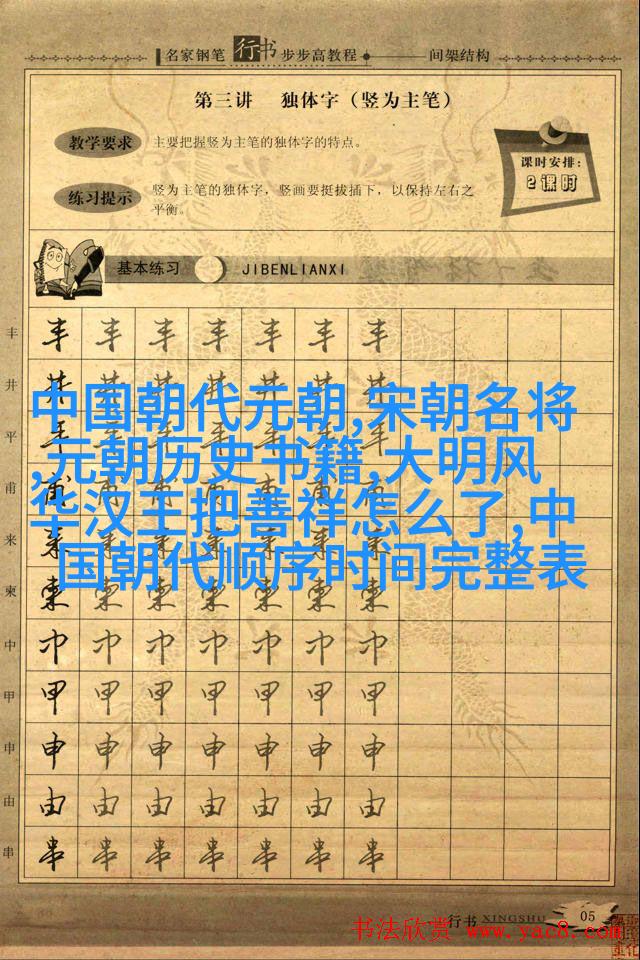 名家钢笔 行书 步步高教程 间架结构
第三讲 独体字（竖为主笔）
教学要求 主要把握竖为主笔的独体字的特点。
课时安排:
2课时
练习提示 竖为主笔的独体字，竖画要挺拔插下，以保持左右之
平衡。
基本练习 JIBENLIANXI
丰 丰 丰 丰 丰 丰 丰 丰
井 井 井 井 井 井 井 井
中国朝代元朝,宋朝名将
,元朝历史书籍,大明风
华汉王把善祥怎么了,中
国朝代顺序时间完整表
平 平 平 平 平 平 平 平
甫 甫 甫 甫 甫 甫 甫 甫
来 来 来 来 来 来 来 来
柬 柬 柬 柬 柬 柬 柬 柬
中 中 中 中 中 中 中 中
甲 甲 甲 甲 甲 甲 甲 甲
申 申 申 申 申 申 申 申
由 由 由 由 由 由 由 由
串 串 串 串 串 串 串 串
行书 XINGSHU 05
书法欣赏 www.yac8.com